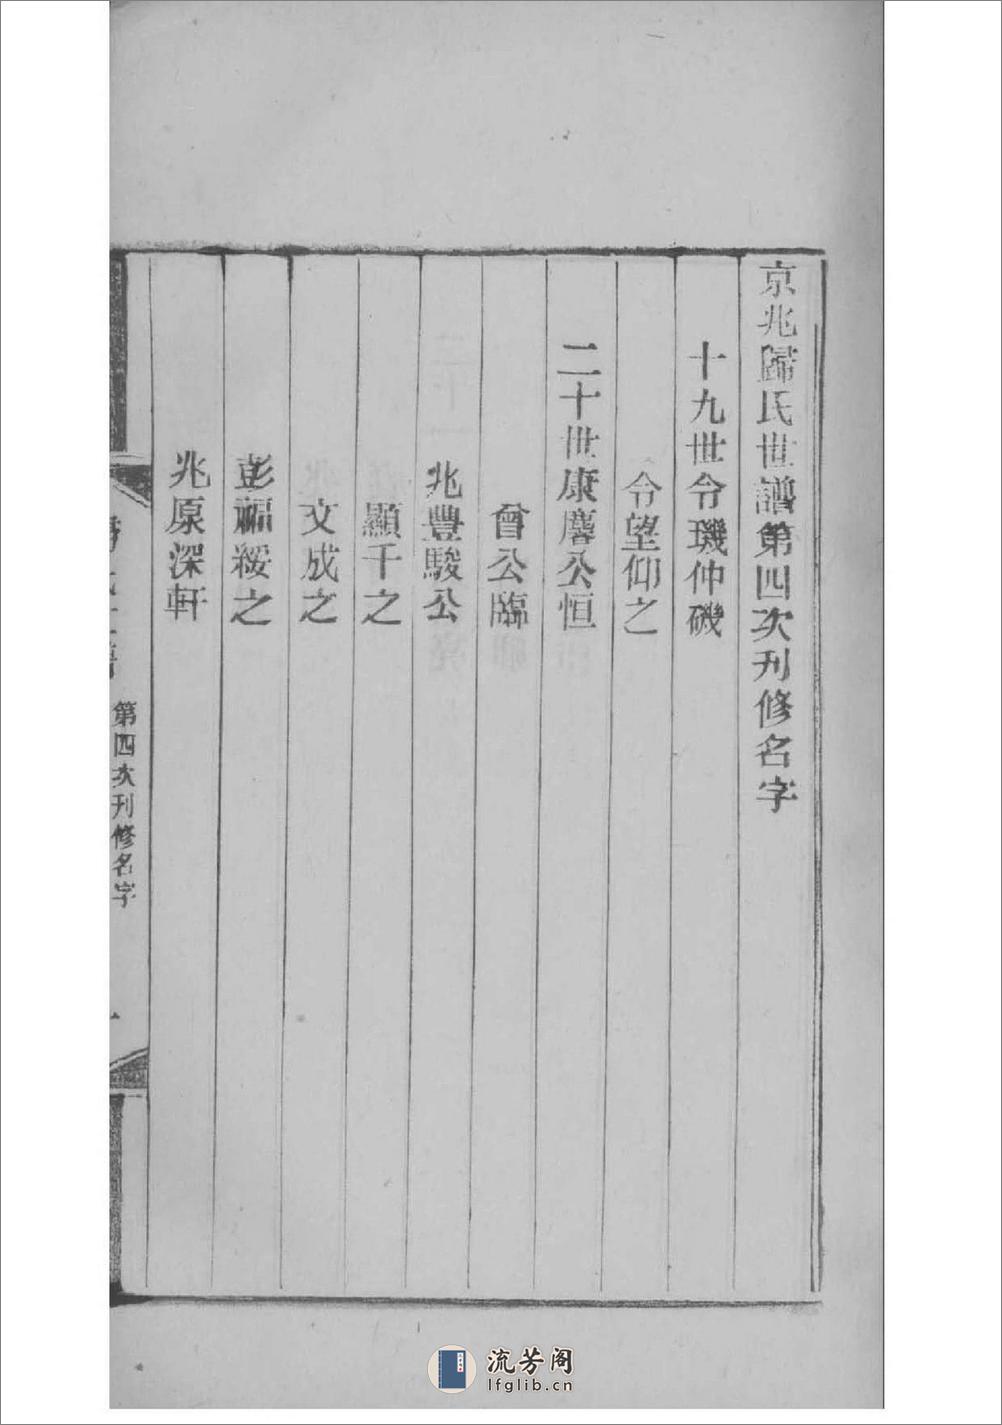 京兆歸氏世譜第四次刊修名字
十九世令璣仲磯
令望仰之
二十世康麐公恒
曾公臨
兆豐駿公
顯千之
文成之
彭福綏之
兆原深軒
第四次刊修名字
一
流芳阁
lfglib.cn